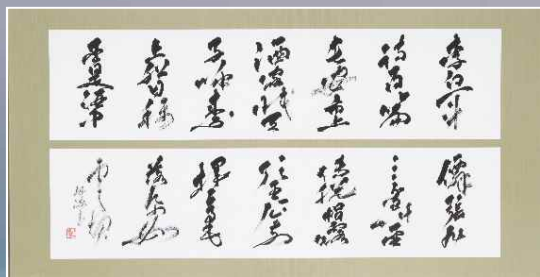 李白一斗
詩百篇
長安市上
酒家眠天
子呼来不
上船自称
臣是酒中
仙張旭
三盃草聖
傳脱帽露
頂王公前
揮毫
落紙如
雲烟